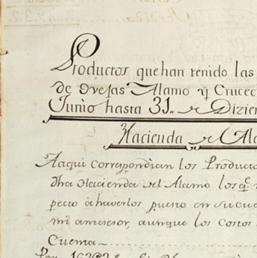 Productos que han tenido las
de Ovejas Alamo y Cruces
Junio hasta 31,, de Dizien
Hacienda de Ala
Aaqui correspondian los Producto
dha Hacienda del Alamo los q.e
pecto á haverlos puesto en su cue
mi antecesor, aunque los Costos
Cuenta